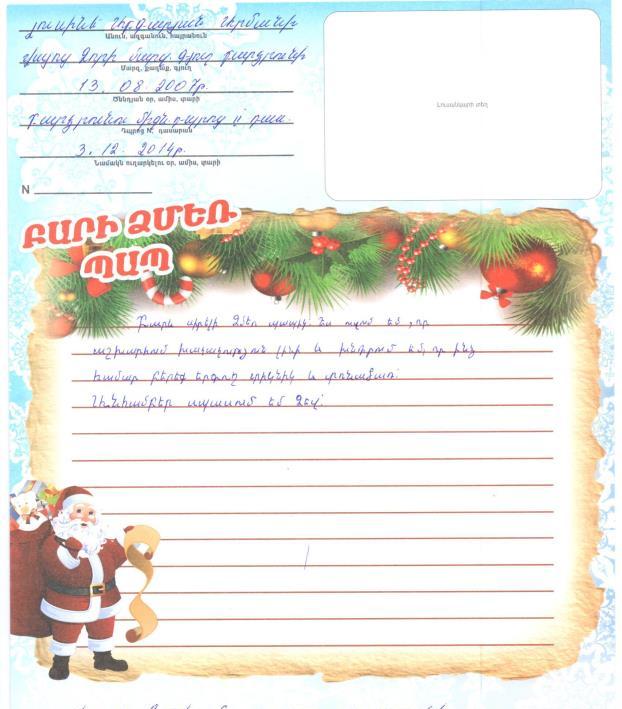 Լուսինե
Անուն, ազգանուն, հայրանուն
Վայոց Ձորի մարզ. գյուղ Խաչիկ
Մարզ, քաղաք, գյուղ
13. 08. 2007թ.
Ծննդյան օր, ամիս, տարի
միջն. դպրոց դաս.
Դպրոց N, դասարան
3. 12. 2014թ.
Նամակն ուղարկելու օր, ամիս, տարի
N
Լուսանկարի տեղ
ԲԱՐԻ ՁՄԵՌ
ՊԱՊ
սիրելի Ձմեռ պապիկ ես ուզում եմ, որ
աշխարհում խաղաղություն լինի և խնդրում եմ, որ ինձ
համար բերեք երգող տիկնիկ և տոնածառ:
Անհամբեր սպասում եմ Ձեզ: